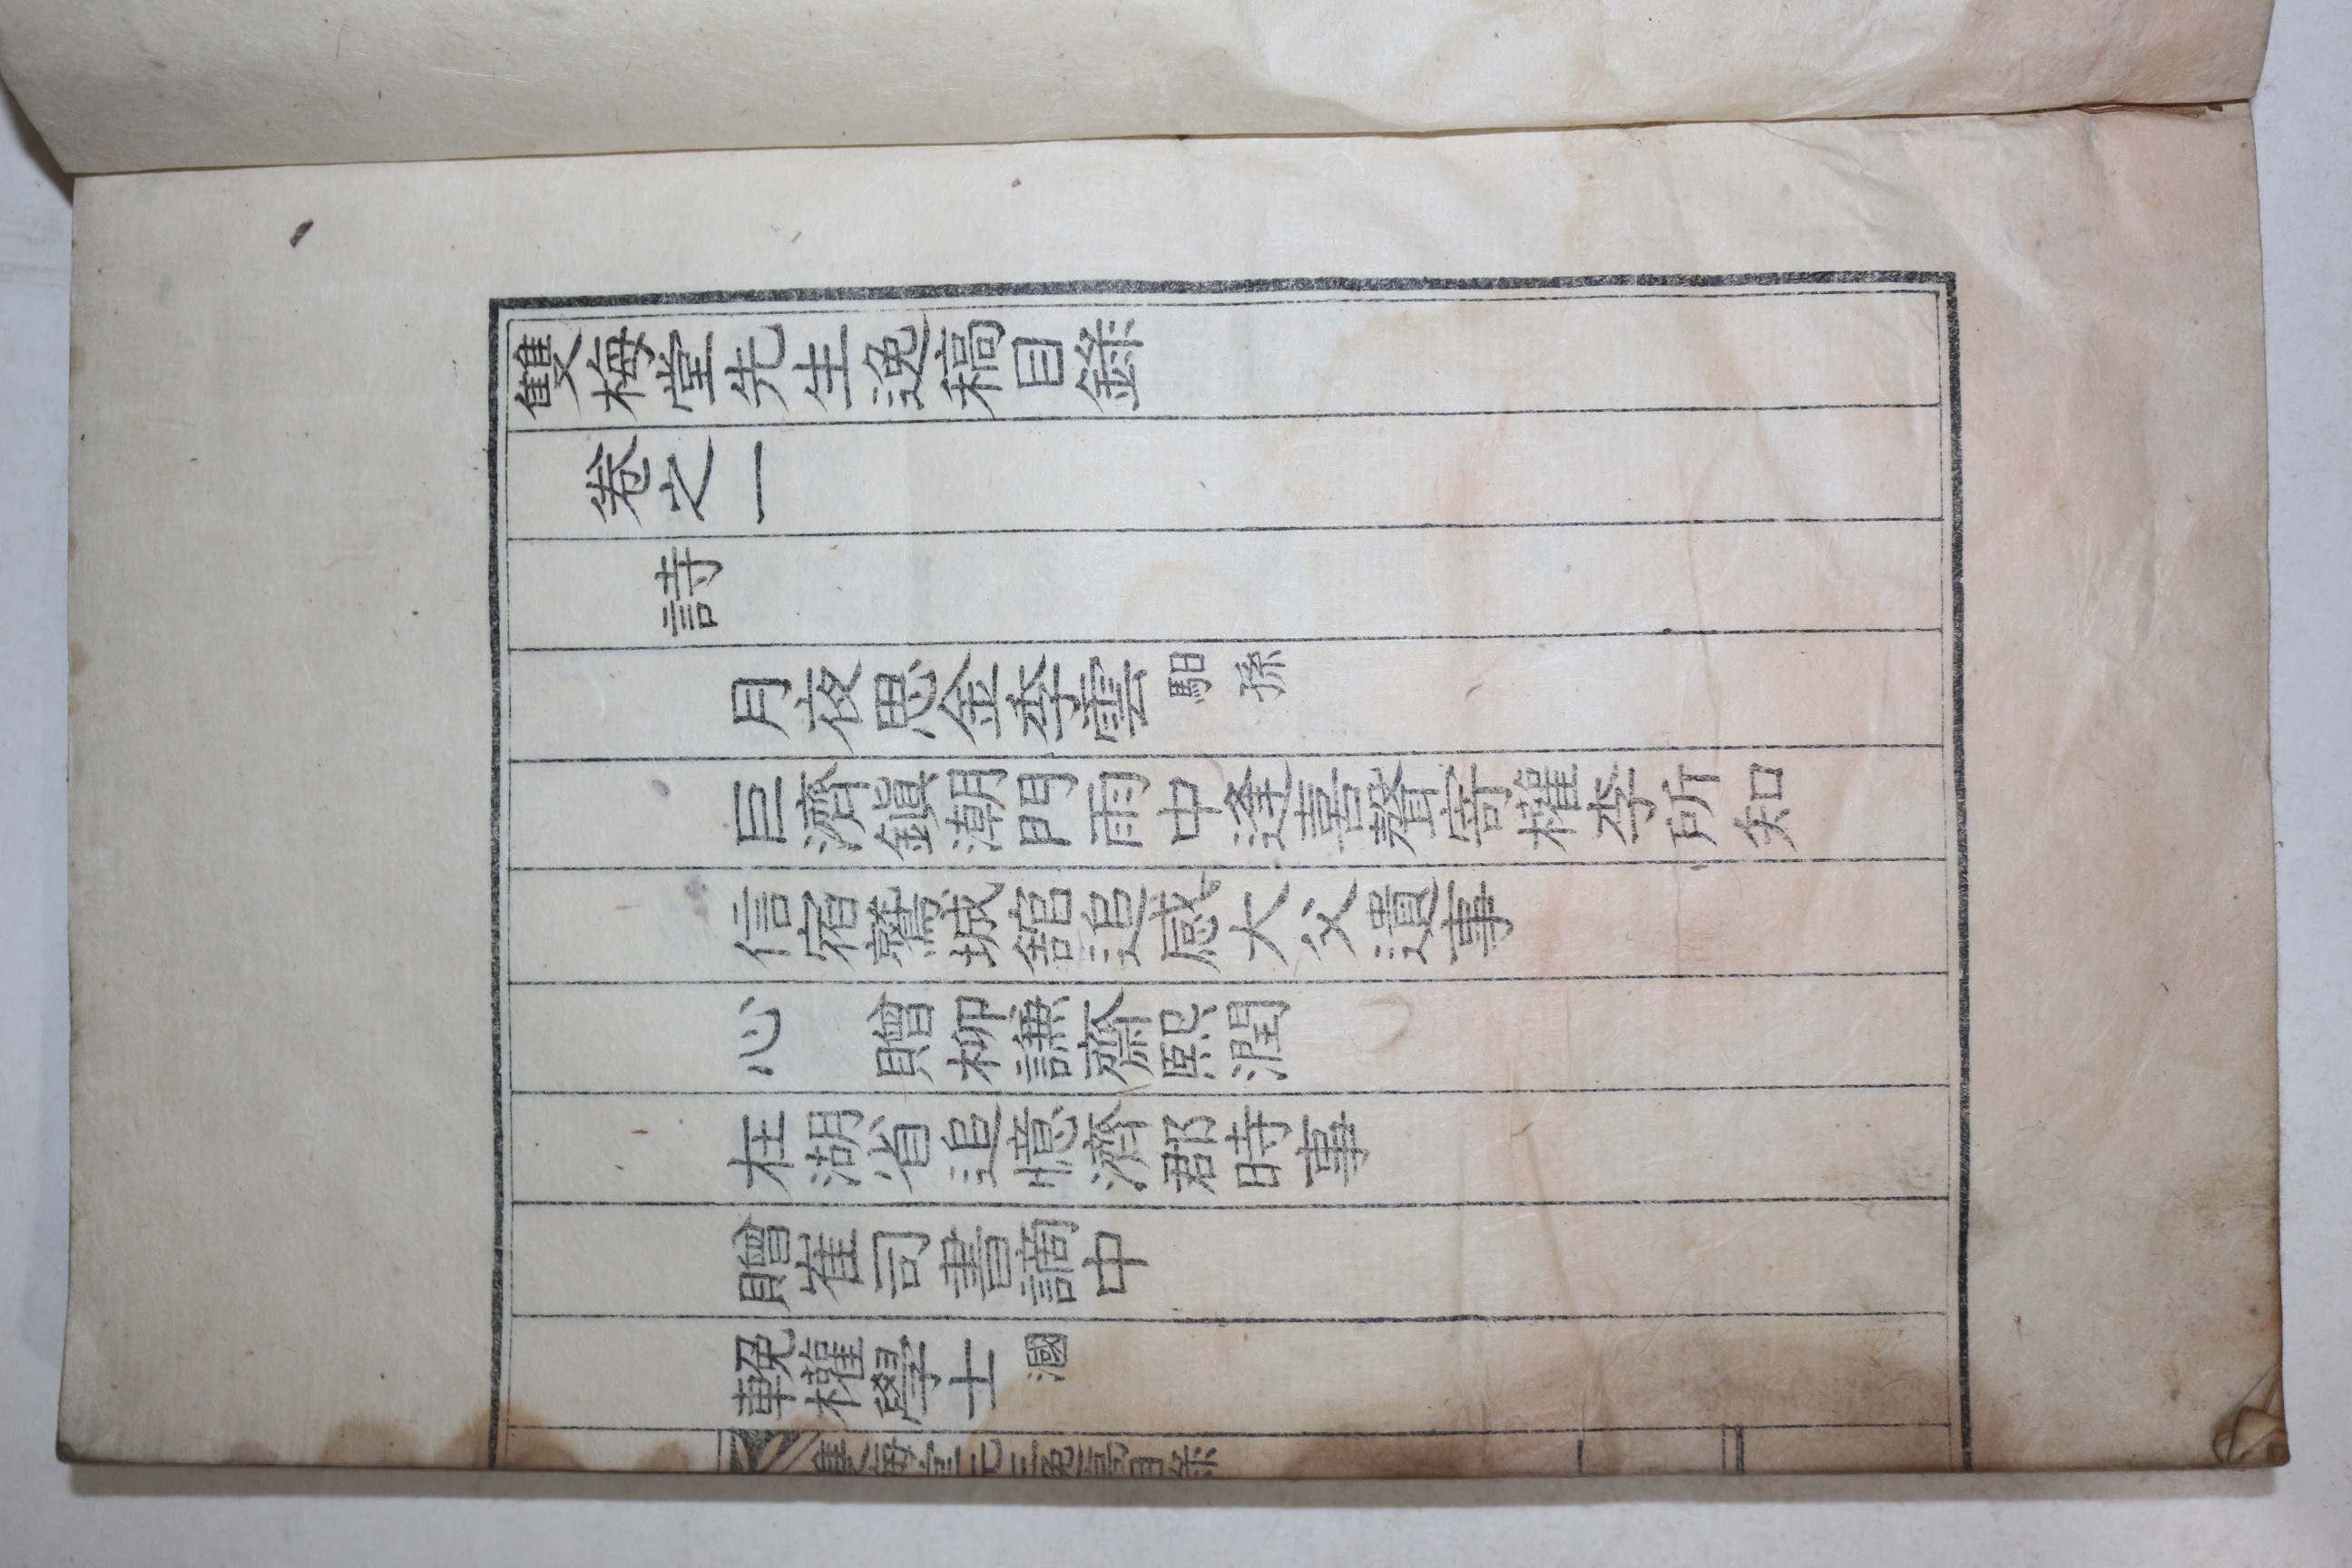 雙梅堂先生逸稿目錄
卷之一
詩
月夜思金季雲 馹孫
巨濟鎭潮門雨中逢喜聲寄權李所知
信宿鷲城舘追感大父遺事
心 贈柳謙齋熙潤
在湖省追憶濟郡時事
贈崔司書謫中
輓權學士 漍
雙梅堂先生逸稿目錄 一